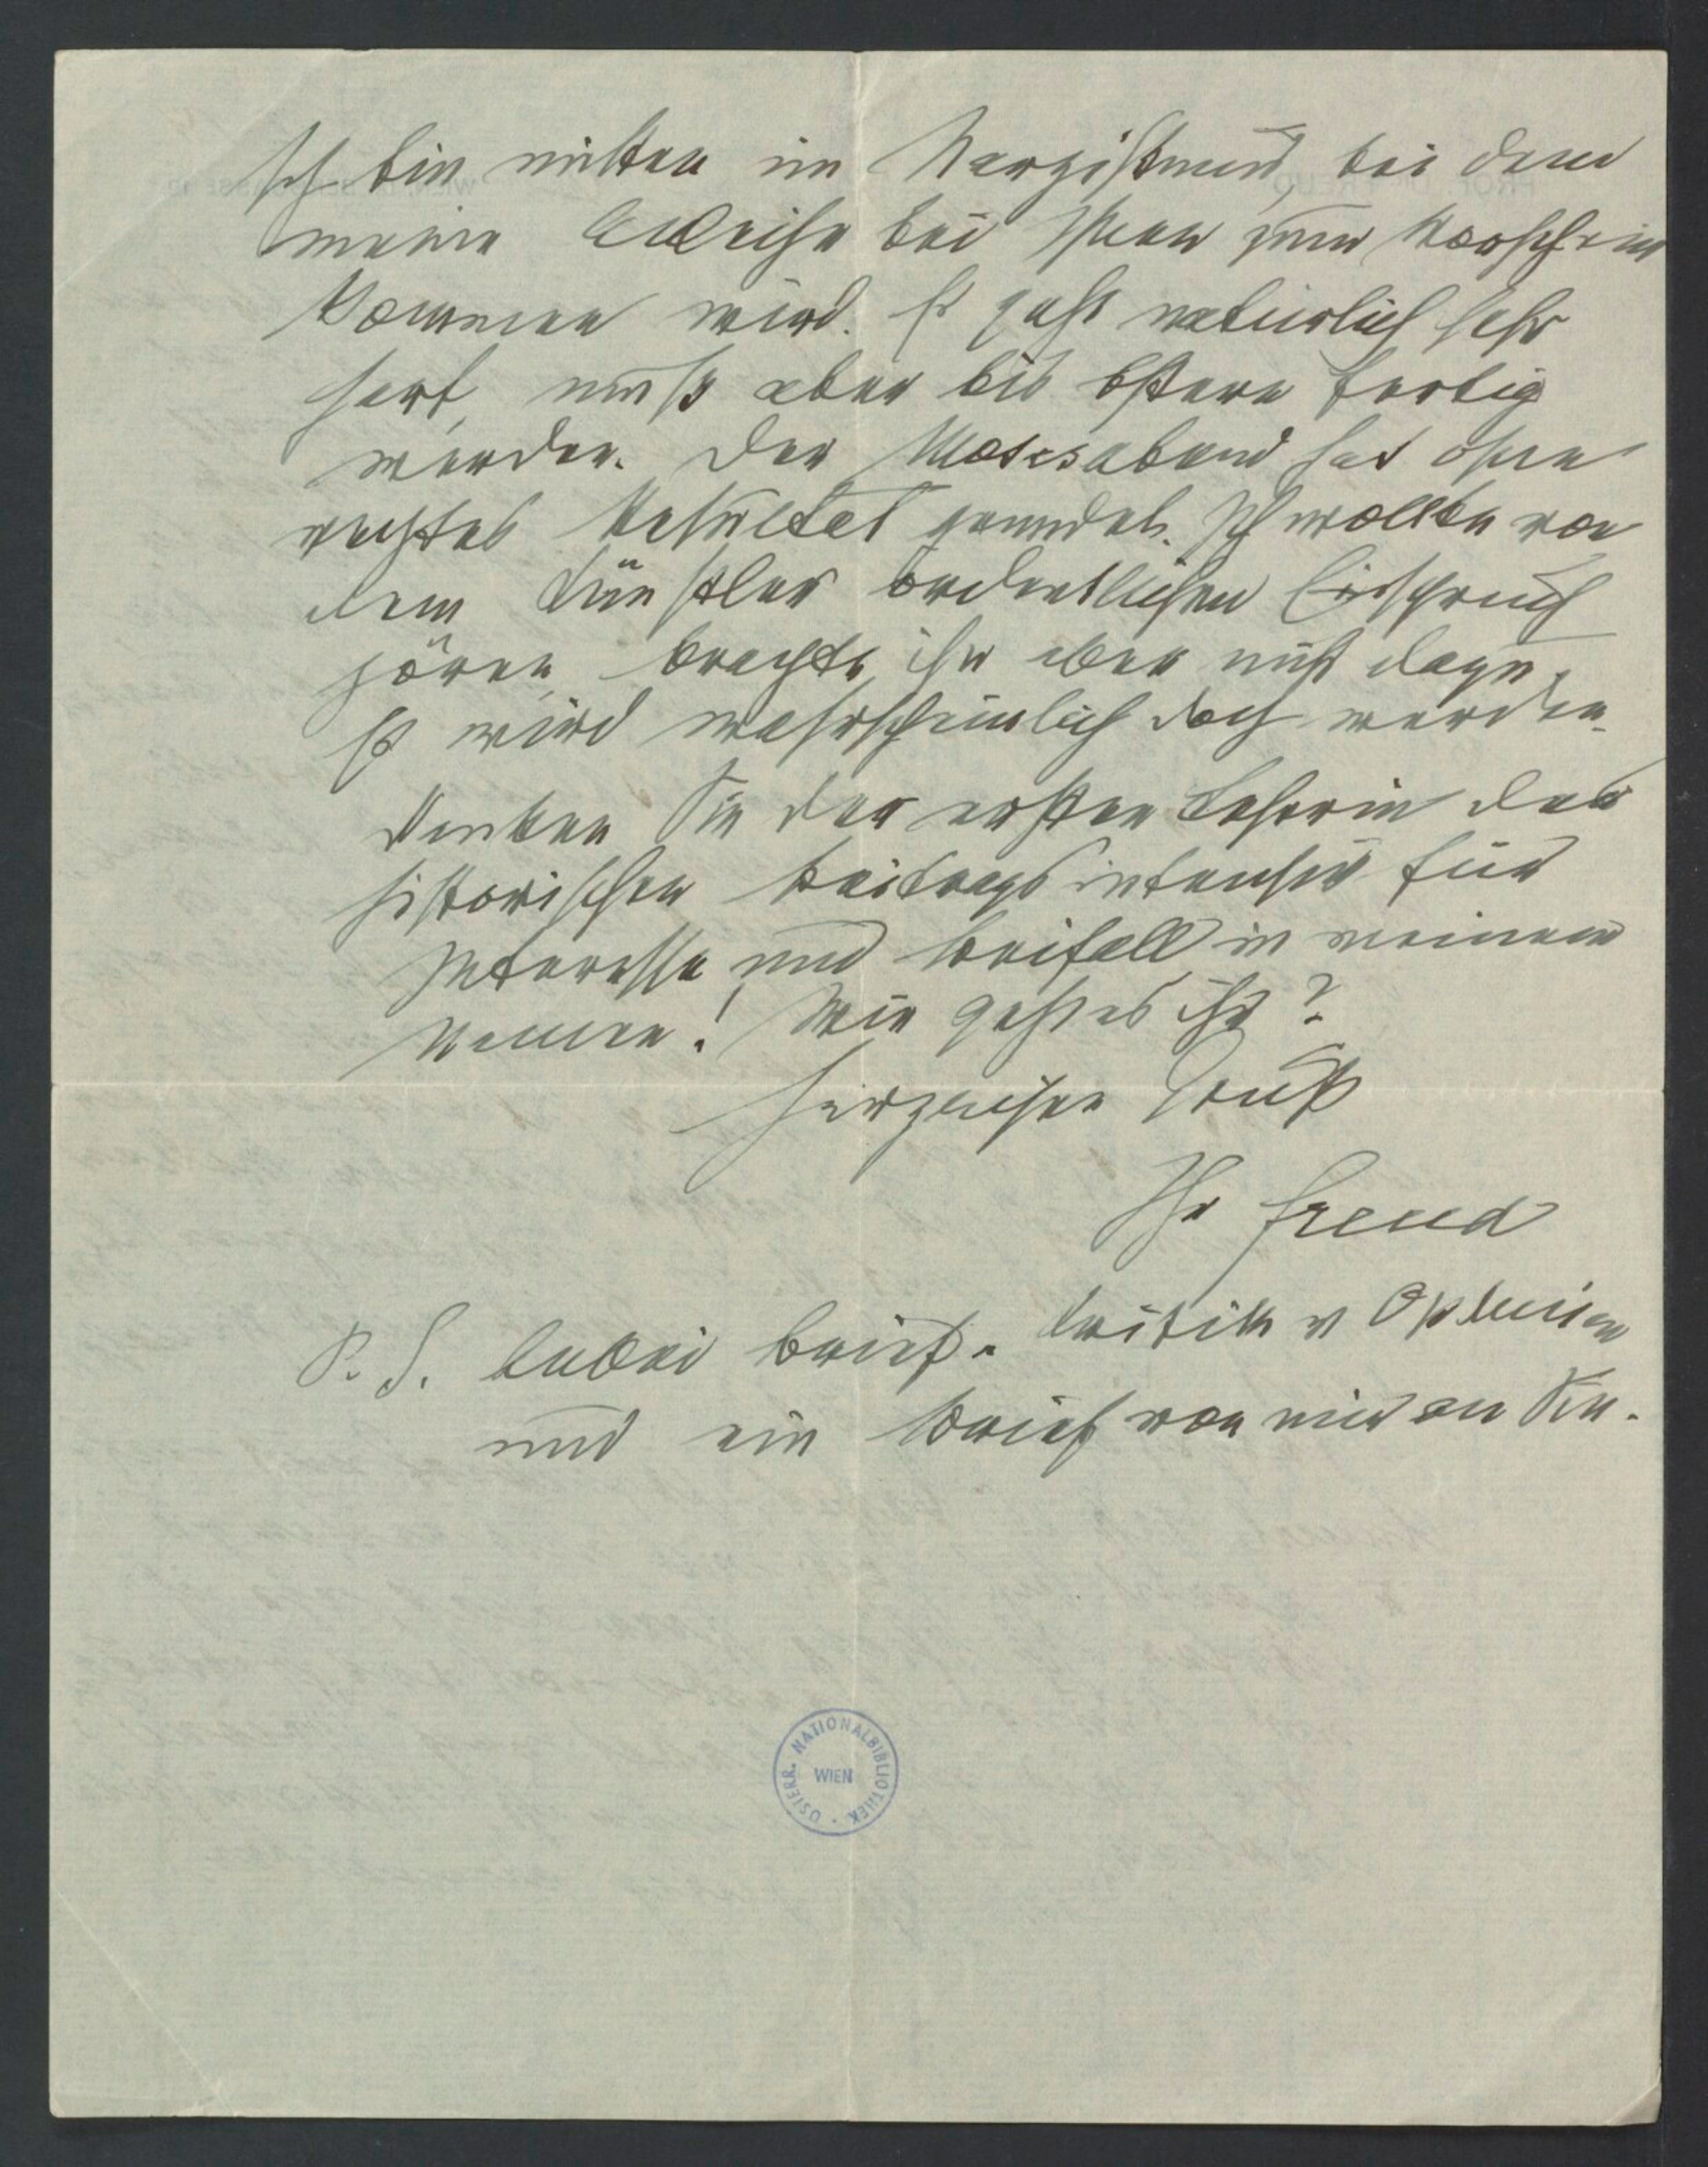 Ich bin mitten im Narzißmus, bei dem
meine Anleihe bei Ihnen zum Vorschein
kommen wird. Es geht natürlich sehr
hart, muß aber bis Ostern fertig
werden. Der Mosesabend hat ohne
rechtes Resultat geendet. Ich wollte von
dem Künstler ordentlichen Einspruch
hören, brachte ihn aber nicht dazu.
Es wird wahrscheinlich doch werden.
Danken Sie der ersten Leserin des
historischen Beitrags intensiv für
Interesse und Beifall in meinem
Namen! Wie geht es ihr?
Herzlichen Gruß
Ihr Freud
P. S. Anbei Brief. Kritik v
und ein Brief von mir an Sie.
ÖSTERR. NATIONALBIBLIOTHEK
WIEN